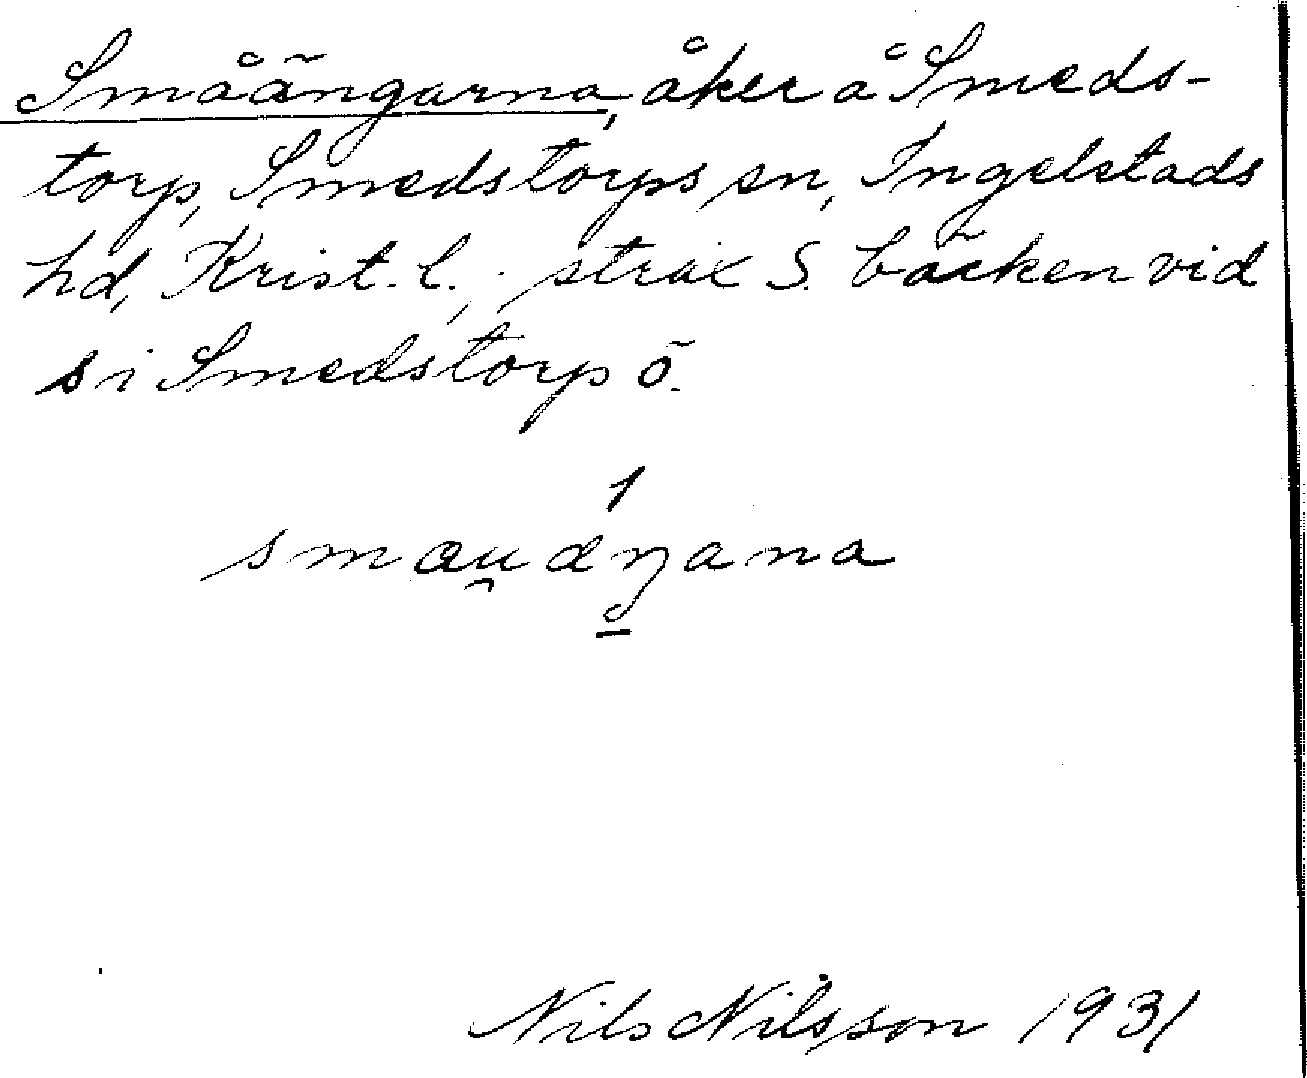 Småängarna, åker å Smeds-
torp, Smedstorps sn, Ingelstads
hd, Krist. l.; strax S. bäcken vid
s i Smedstorp ö.
1
smau̯äŋana
Nils Nilsson 1931